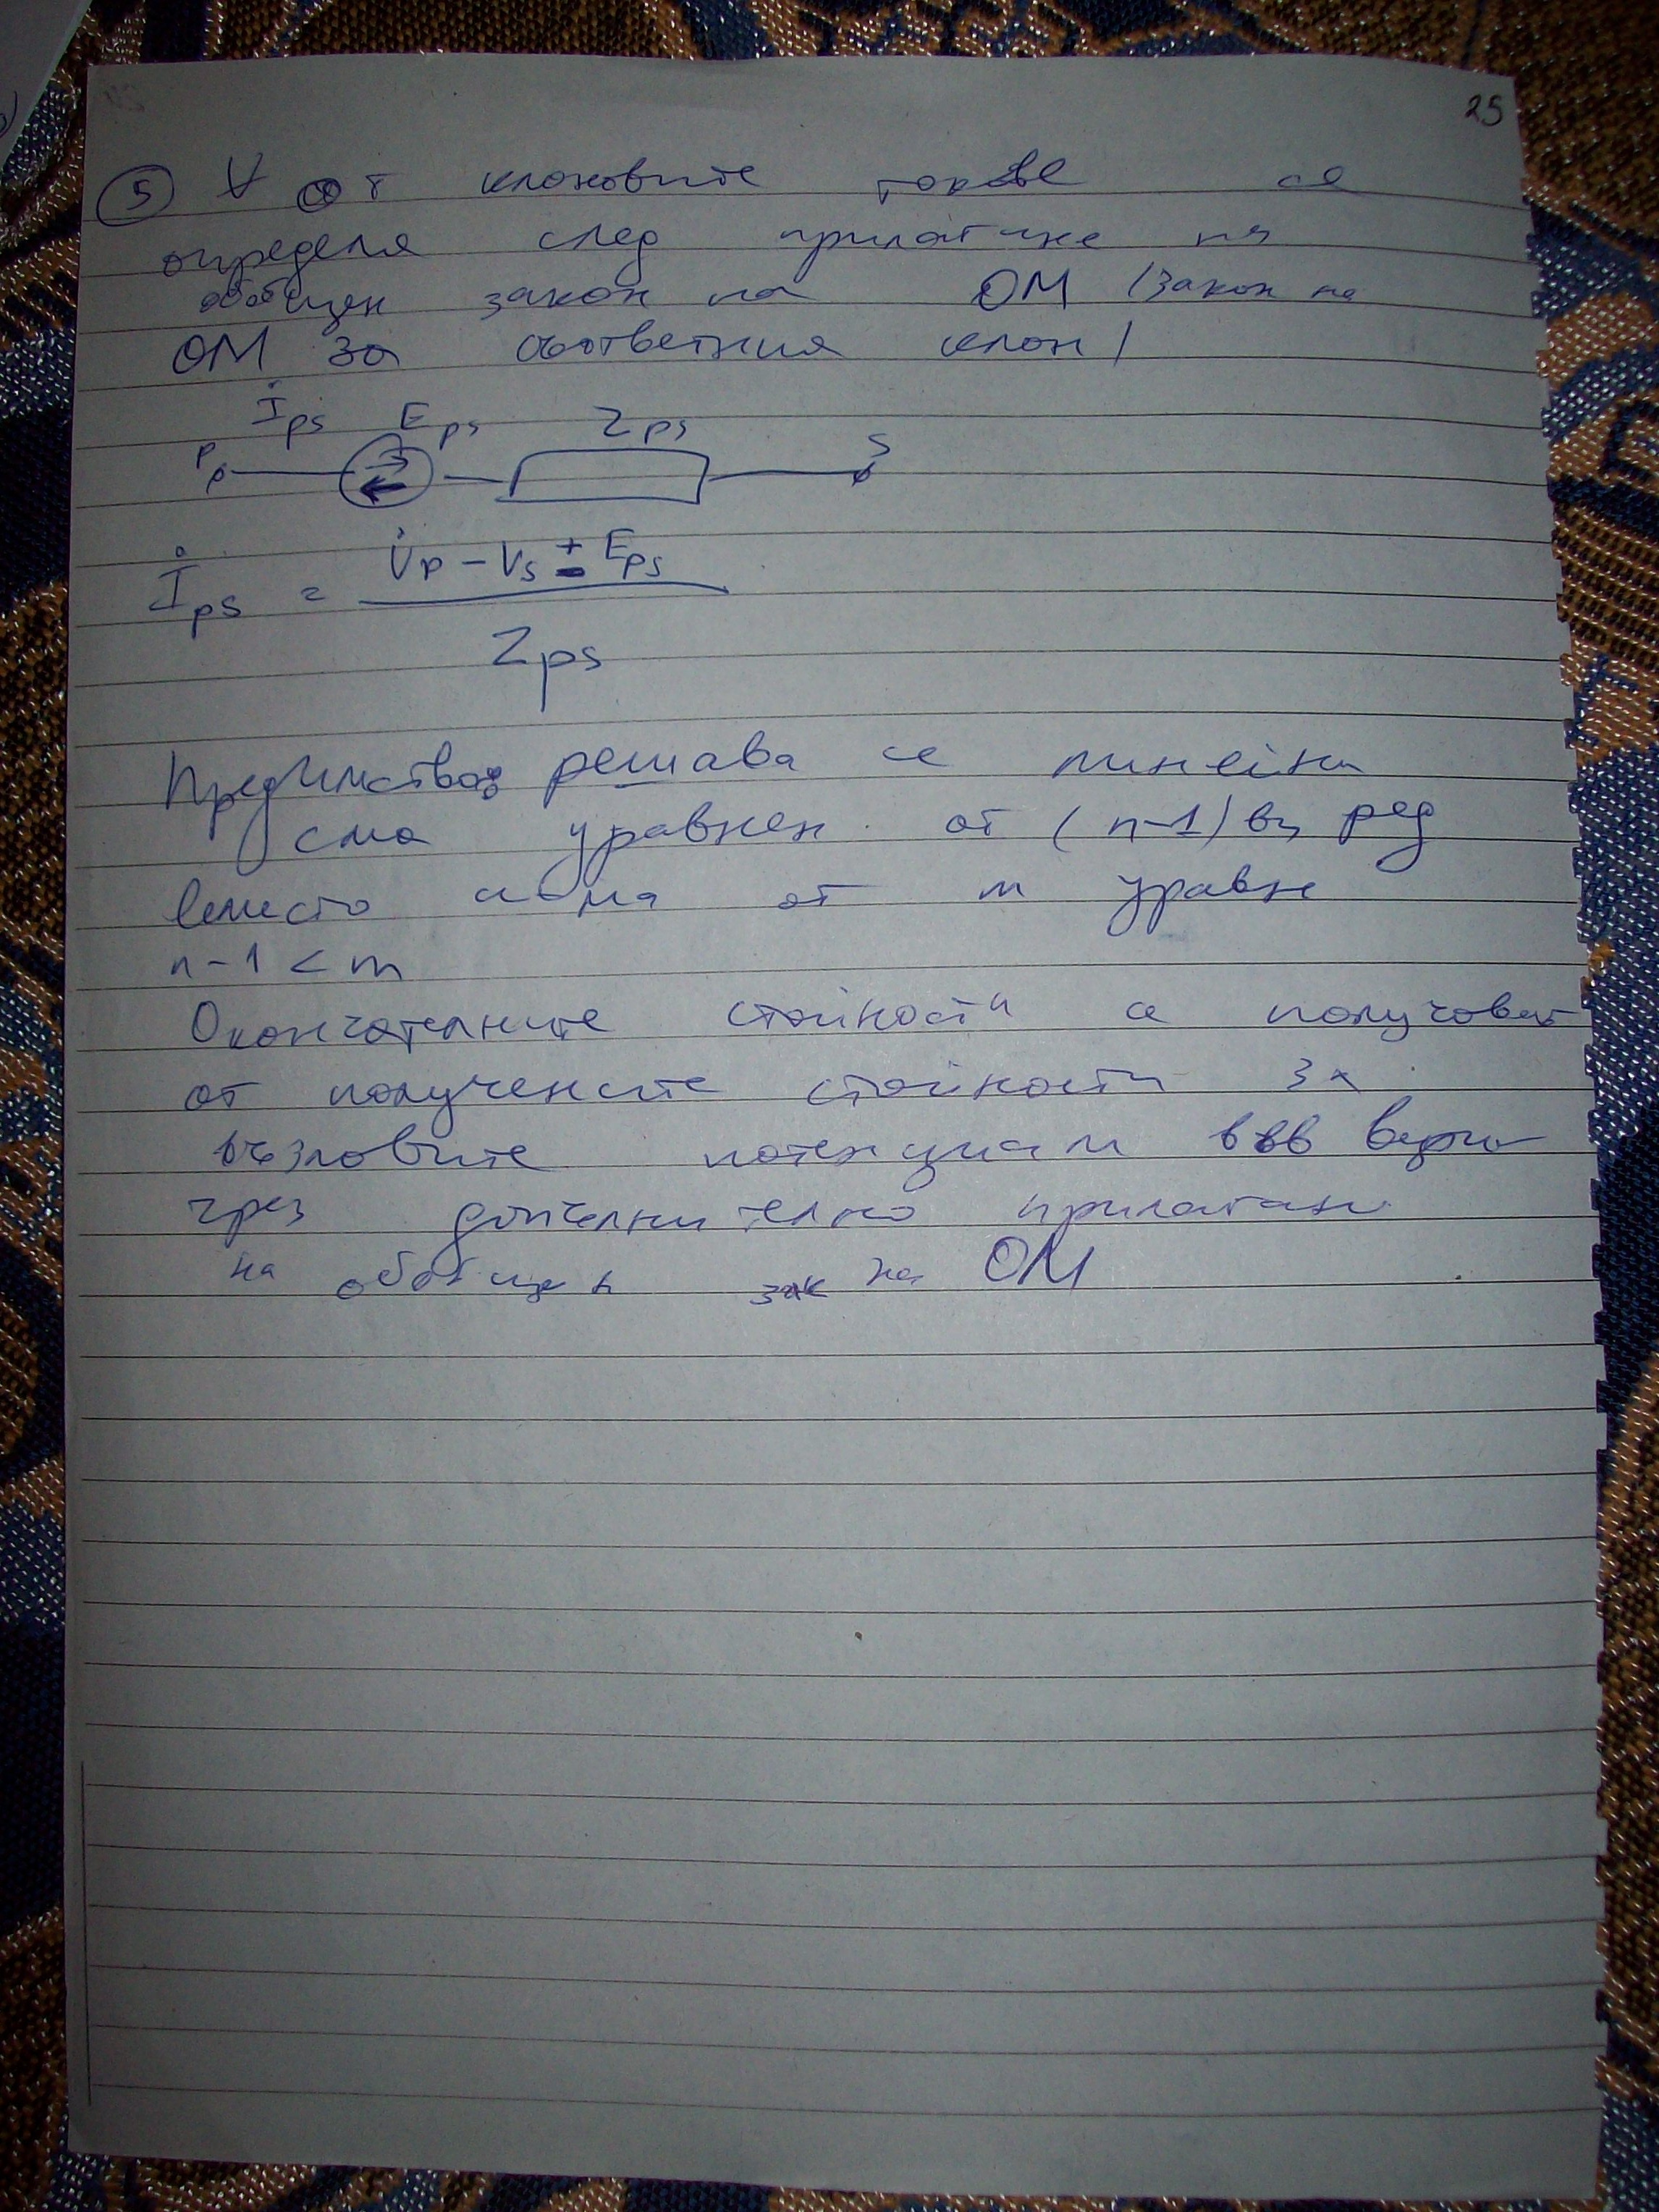 25
⑤ ∀ от клоновите токове се
определя след прилагане на
обобщен закон на ОМ /закон на
ОМ за съответния клон/
İps Eps Zps
P S
İps = V̇p - Vs ± Eps
Zps
Предимства: решава се линейна
с-ма уравнен. от (n-1)ви ред
вместо с-ма от m уравн
n-1 < m
Окончателните стойности се получават
от получените стойности за
възловите потенциали във
чрез допълнително прилаган
на обобщен зак на ОМ